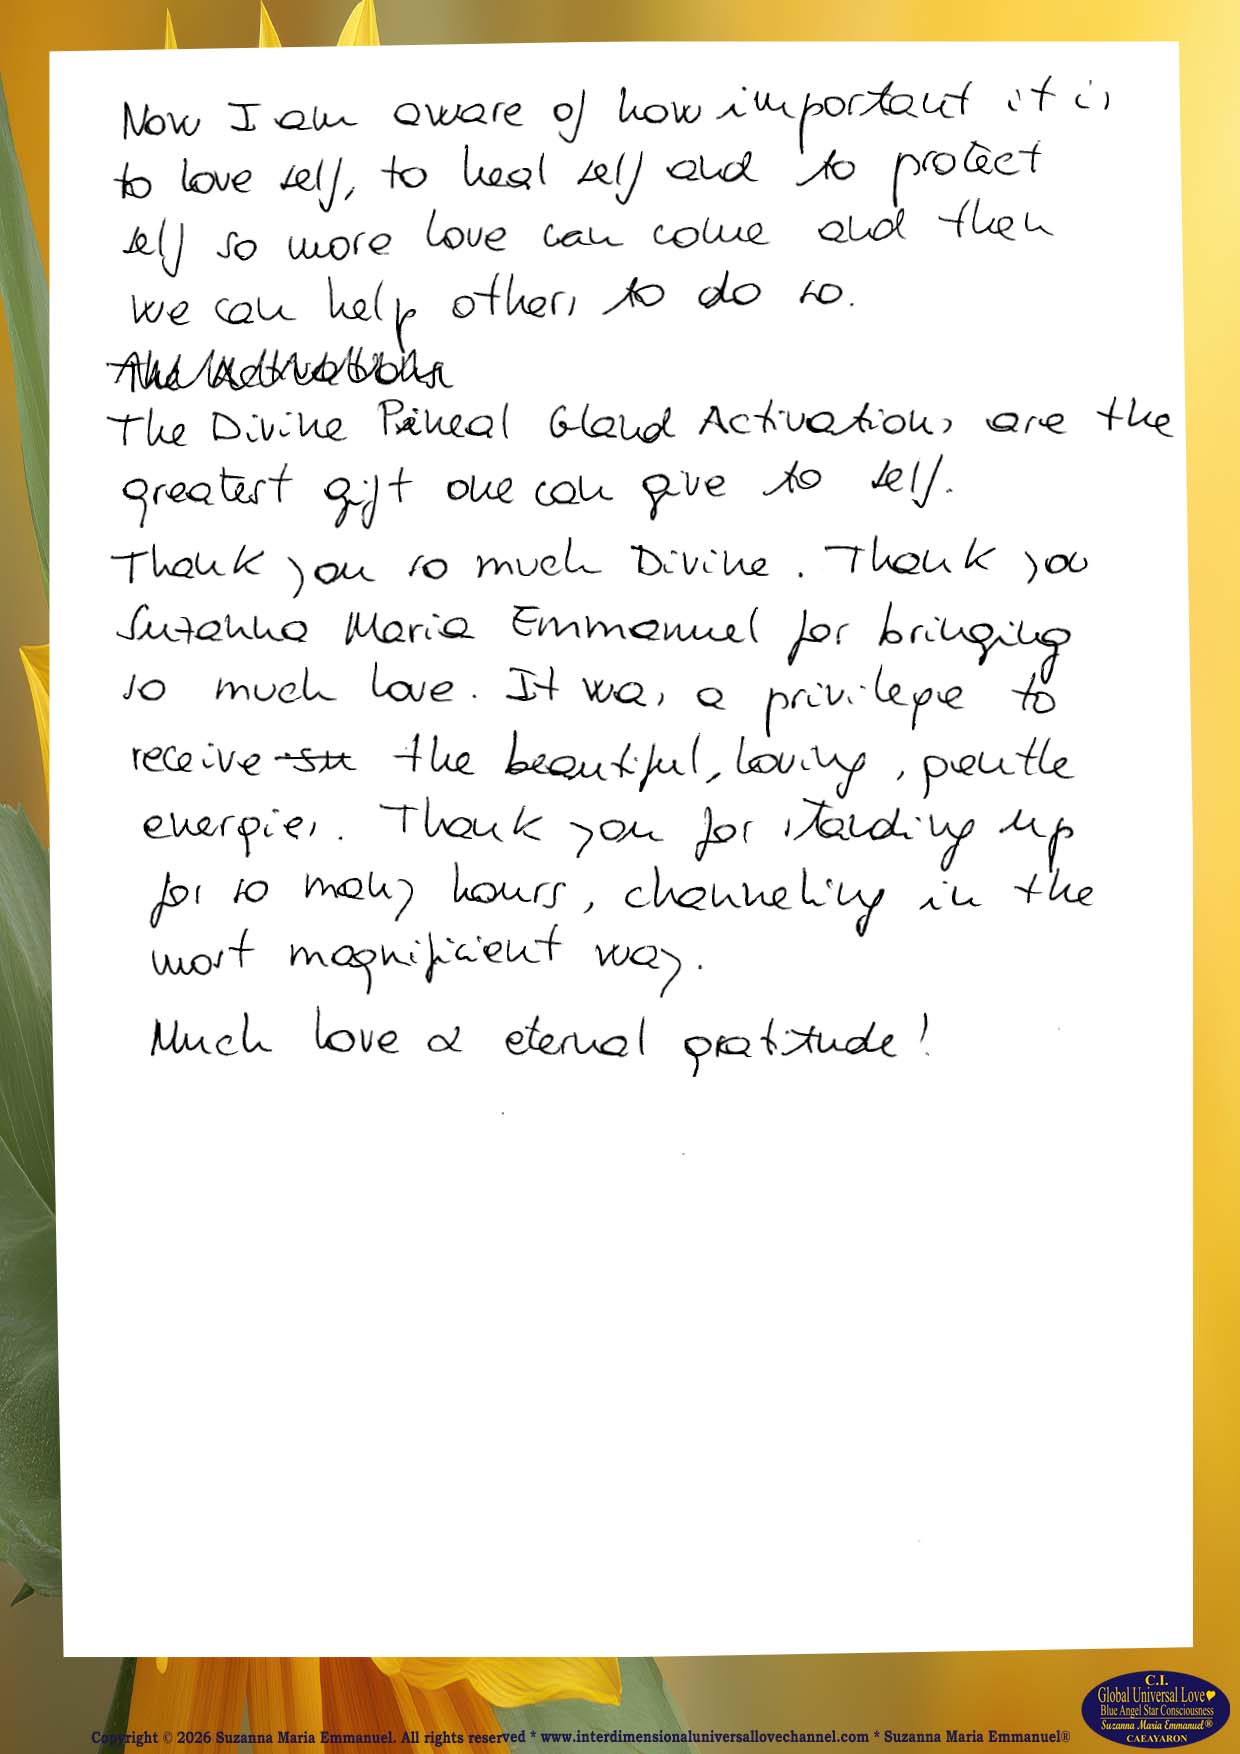 Now I am aware of how important it is
to love self, to heal self and to protect
self so more love can come and then
we can help others to do so.
The Divine Pineal Gland Activations are the
greatest gift one can give to self.
Thank you so much Divine. Thank you
Suzanna Maria Emmanuel for bringing
so much love. It was a privilege to
receive the beautiful, loving, gentle
energies. Thank you for standing up
for so many hours, channeling in the
most magnificient way.
Much love & eternal gratitude!
C.I.
Global Universal Love
Blue Angel Star Consciousness
Suzanna Maria Emmanuel®
CAEAYARON
Copyright © 2026 Suzanna Maria Emmanuel. All rights reserved * www.interdimensionaluniversallovechannel.com * Suzanna Maria Emmanuel®